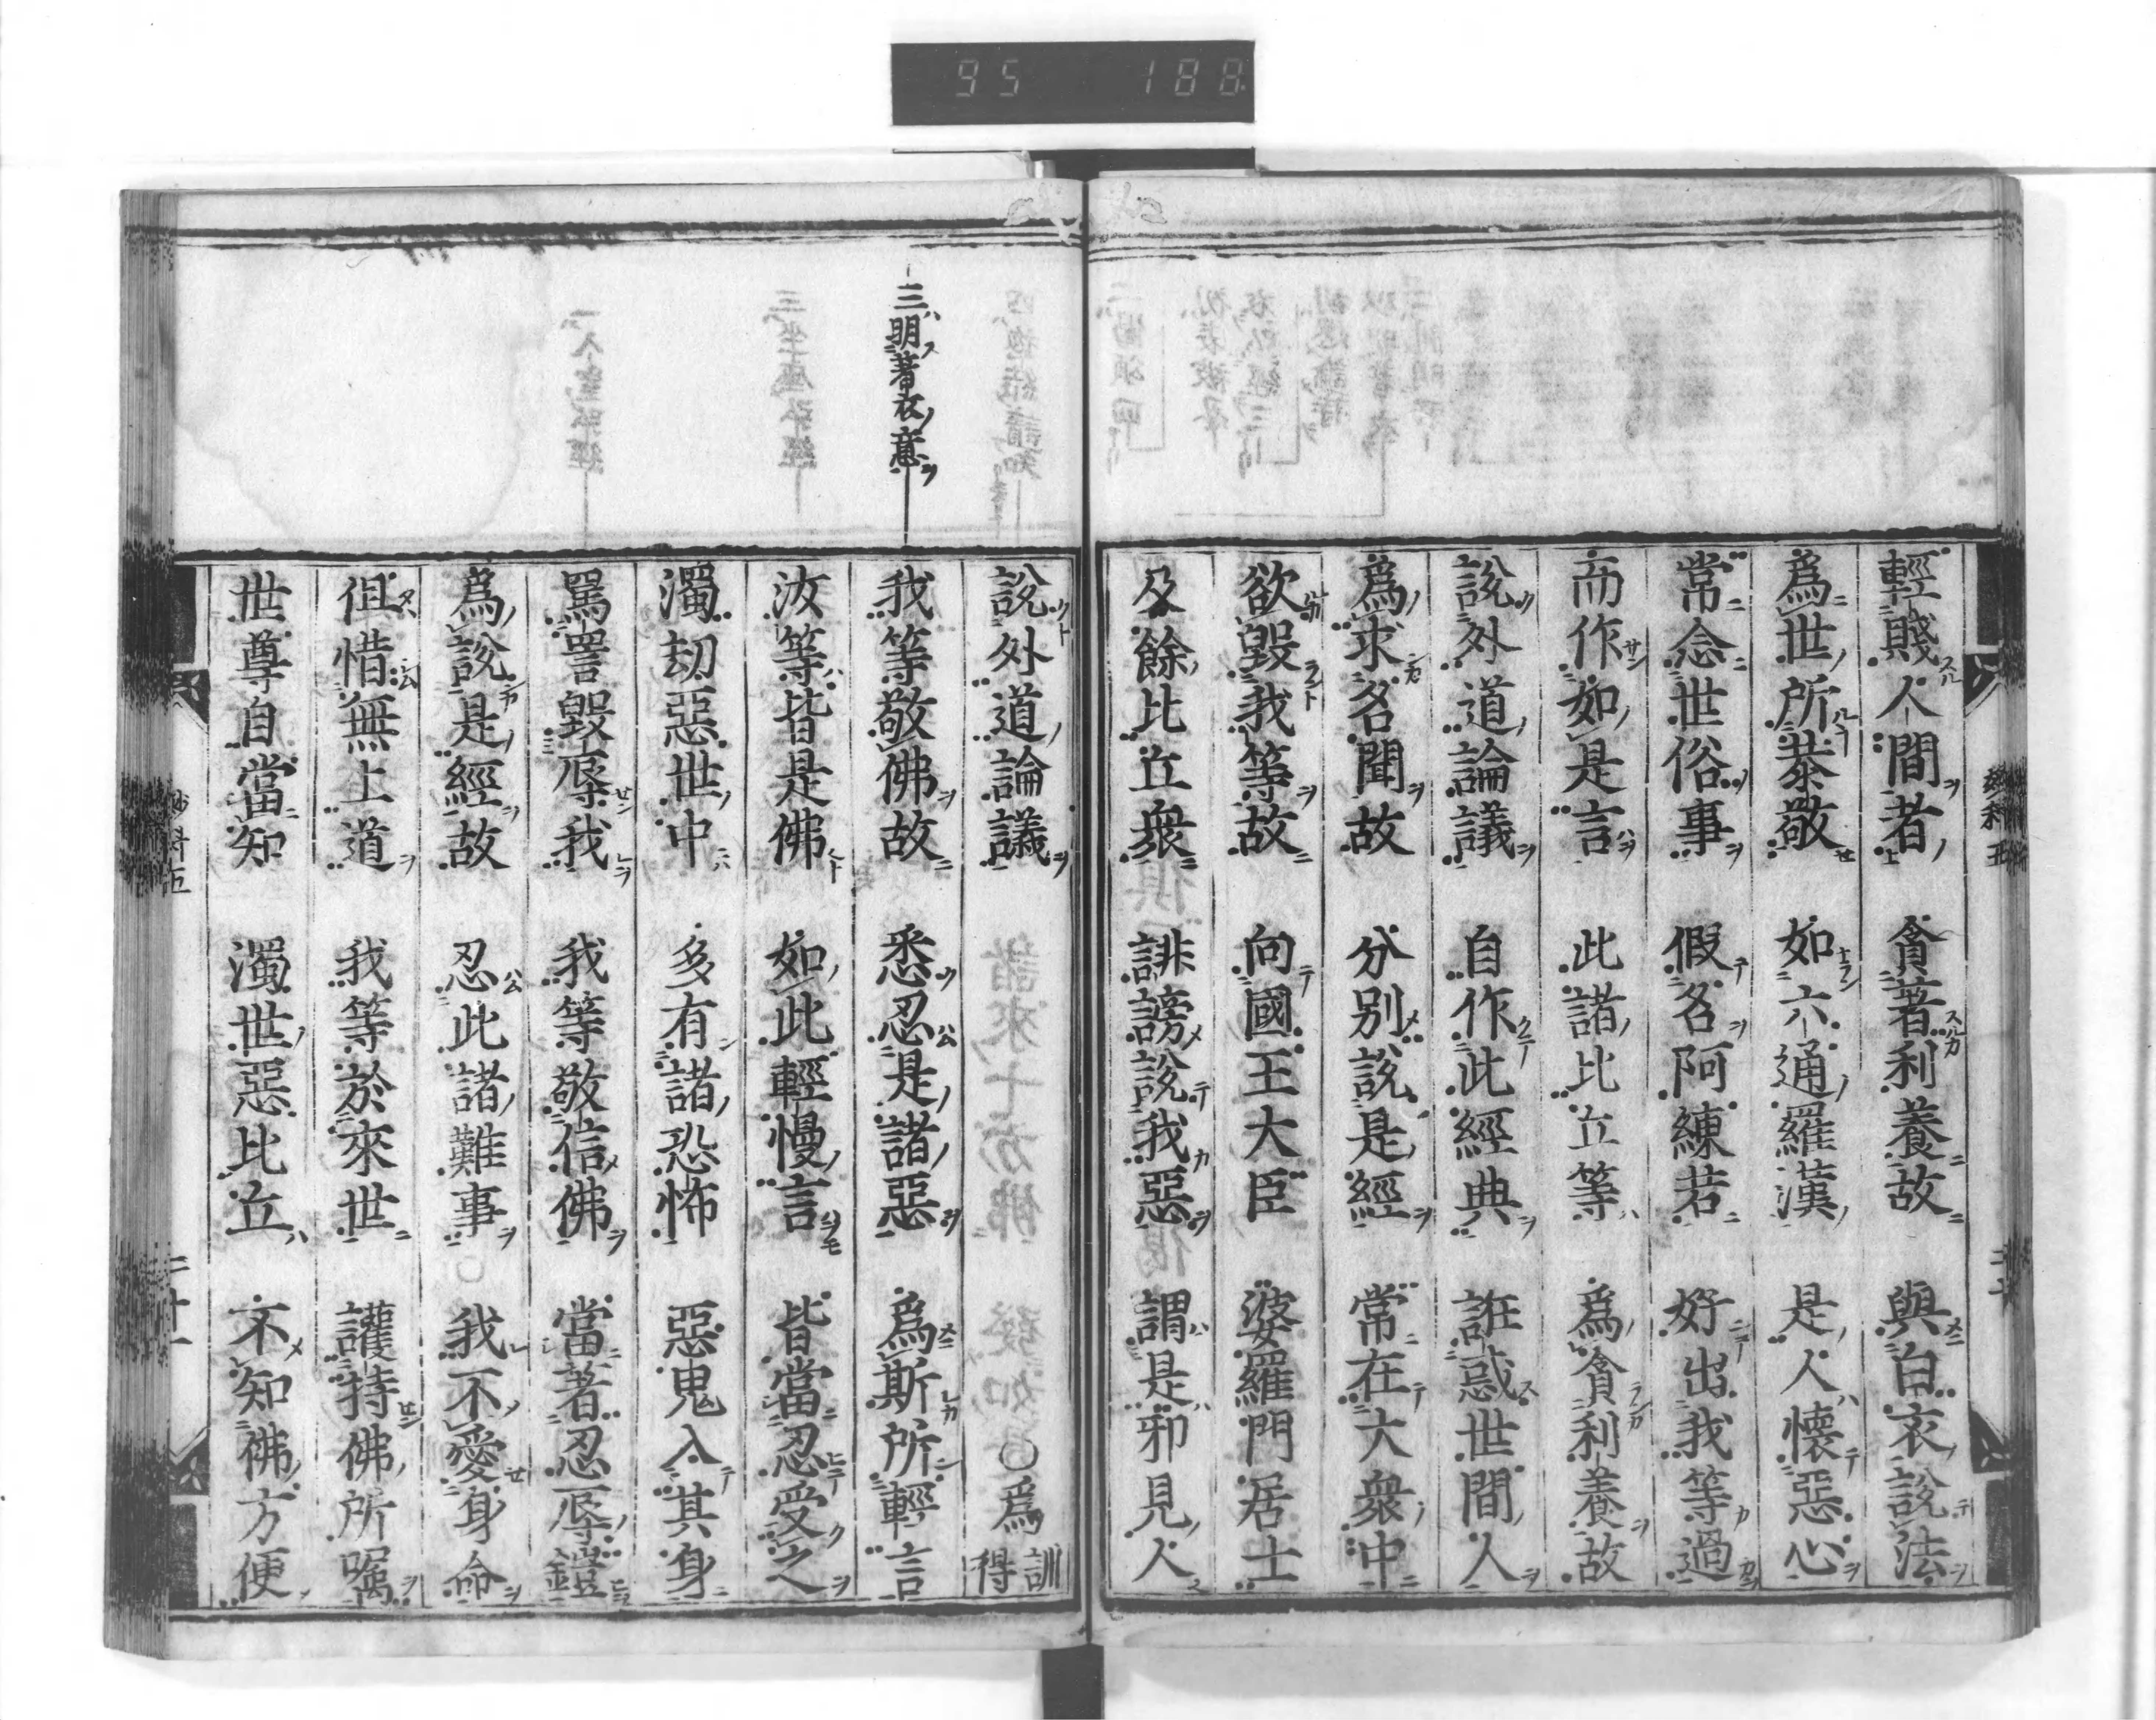 95 188
輕賤人間者 貪著利養故 與白衣說法
爲世所恭敬 如六通羅漢 是人懷惡心
常念世俗事 假名阿練若 好出我等過
而作如是言 此諸比丘等 爲貪利養故
說外道論議 自作此經典 誑惑世間人
爲求名聞故 分別說是經 常在大衆中
欲毀我等故 向國王大臣 婆羅門居士
及餘比丘衆 誹謗說我惡 謂是邪見人
說外道論議 ○爲訓得
三明著衣意
我等敬佛故 悉忍是諸惡 爲斯所輕言
汝等皆是佛 如此輕慢言 皆當忍受之
濁劫惡世中 多有諸恐怖 惡鬼入其身
罵詈毀辱我 我等敬信佛 當著忍辱鎧
爲說是經故 忍此諸難事 我不愛身命
但惜無上道 我等於來世 護持佛所囑
世尊自當知 濁世惡比丘 不知佛方便
二十一